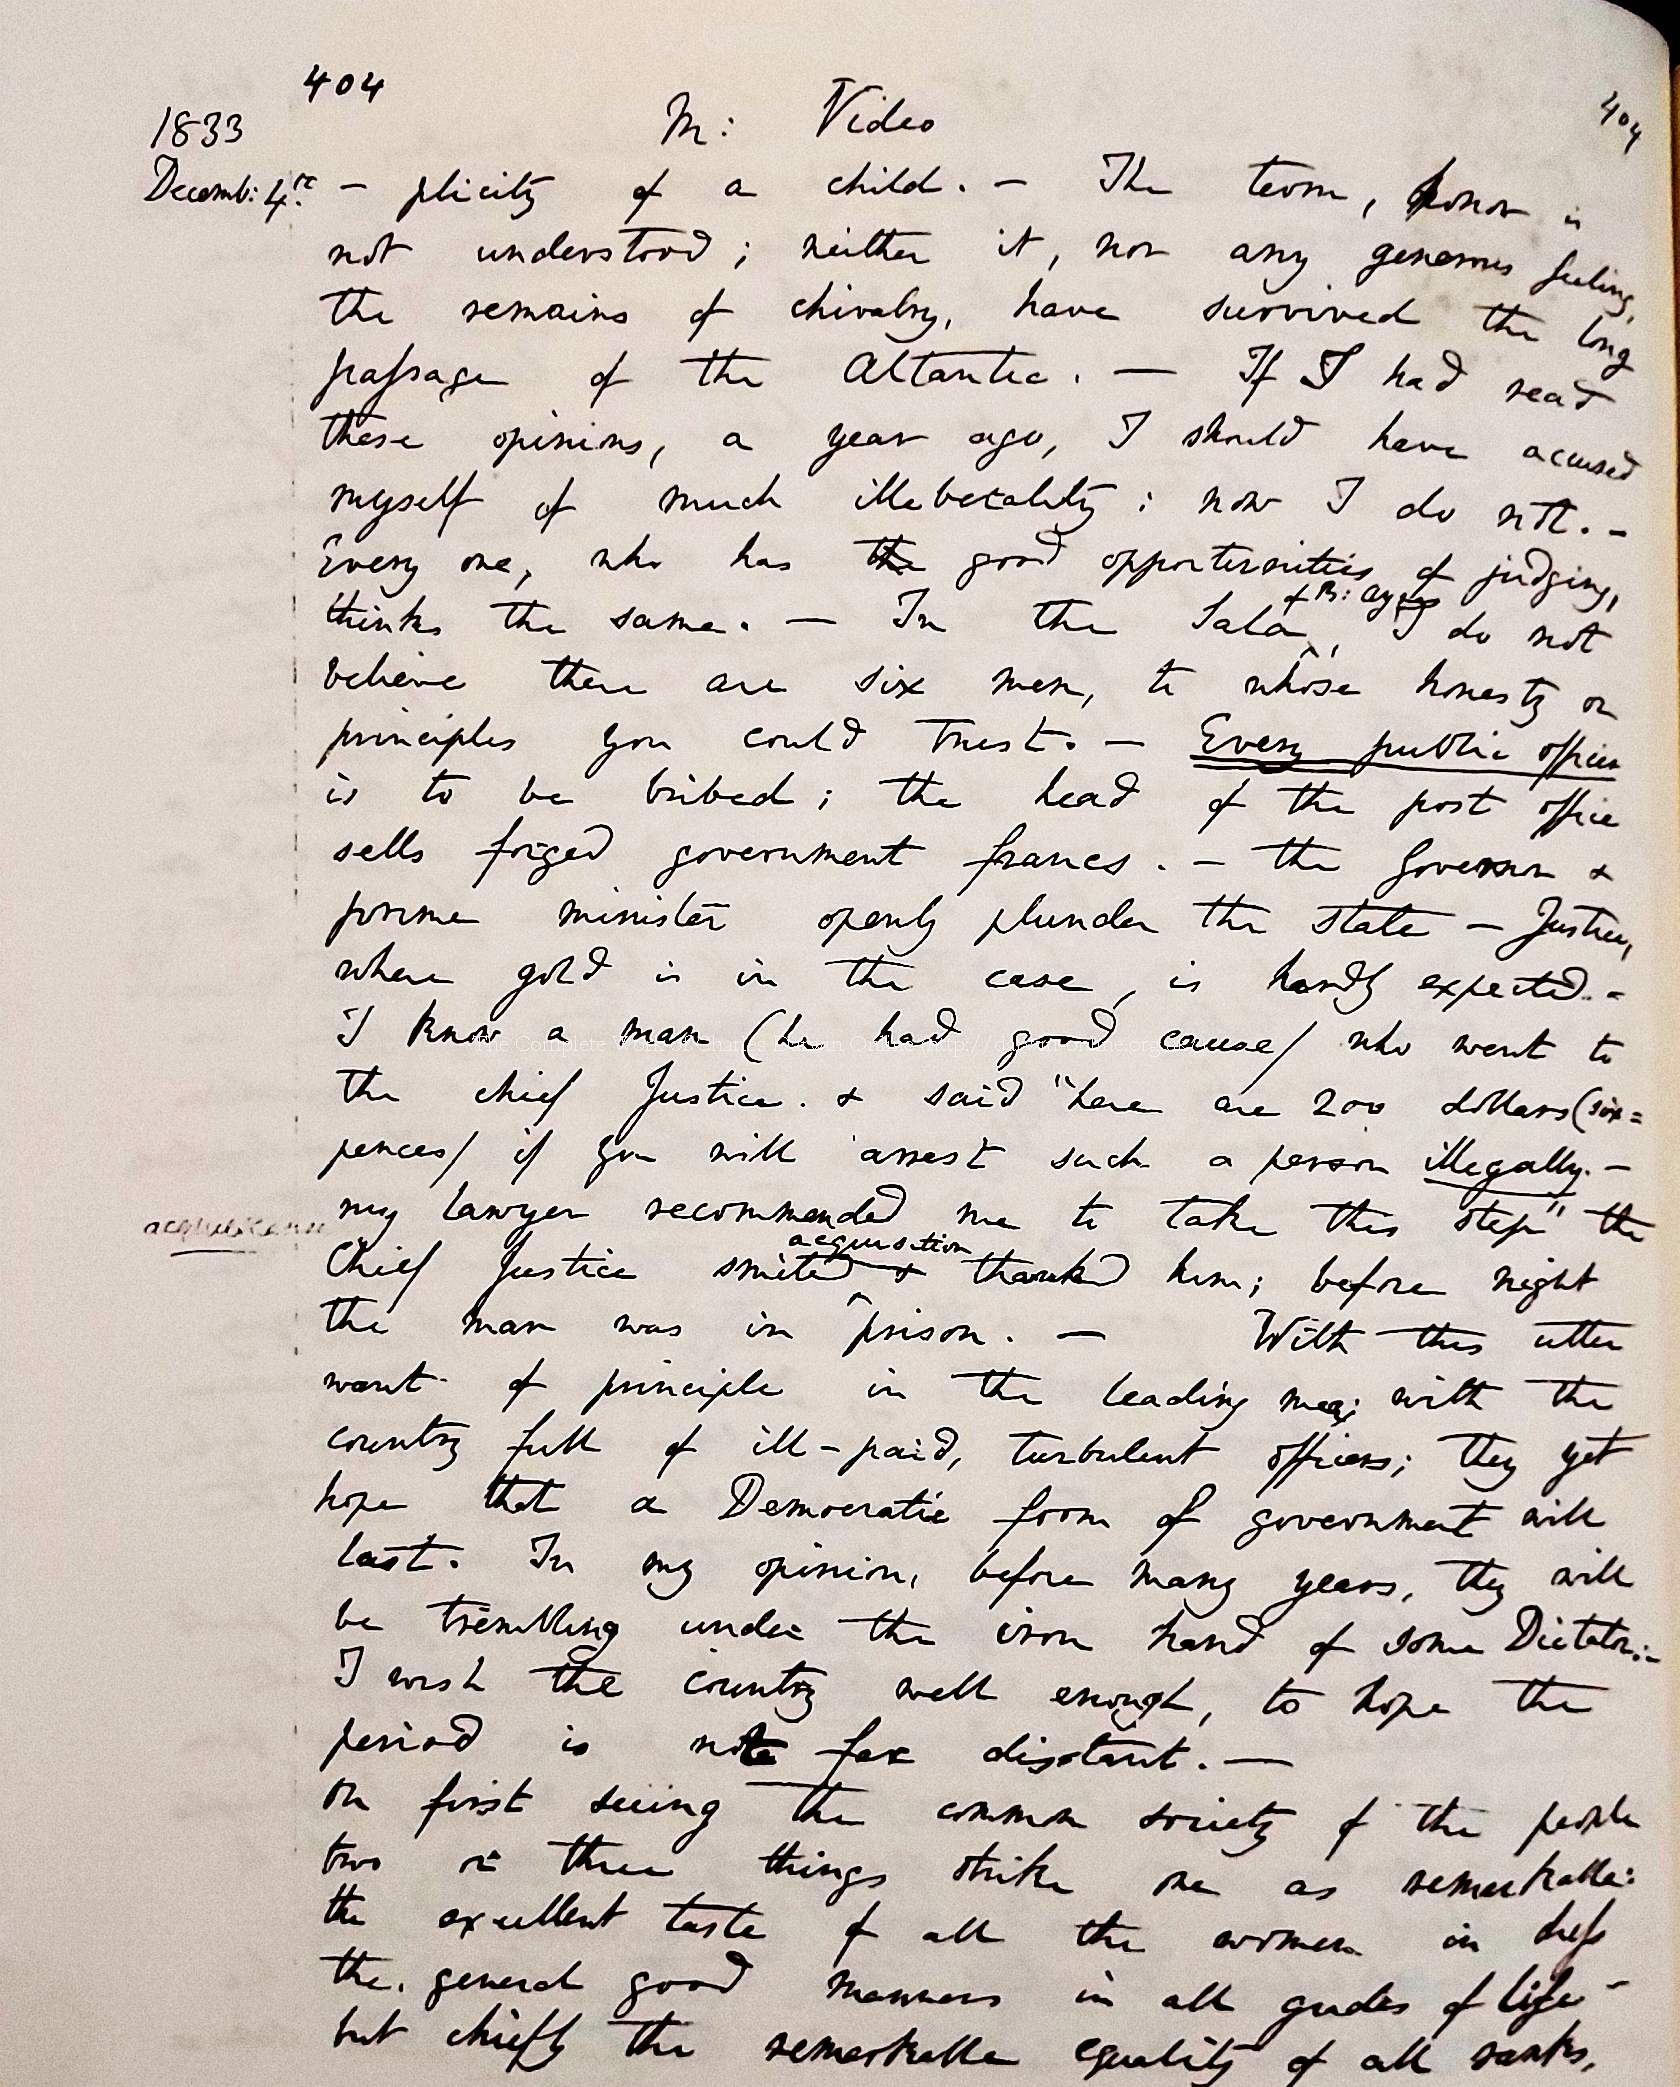 404
404
1833
M: Video
Decemb: 4th
— plicity of a child. — The term, honor is
not understood; neither it, nor any generous feeling,
the remains of chivalry, have survived the long
passage of the Altantic. — If I had read
these opinions, a year ago, I should have accused
myself of much illeberality: now I do not. —
Every one, who has the good opportunities of judging,
of B: Ayres
thinks the same. — In the Sala, I do not
believe there are six men, to whose honesty or
principles you could trust. — Every public officer
is to be bribed; the head of the post office
sells forged government francs. — the Governor &
prime minister openly plunder the state — Justice,
where gold is in the case, is hardly expected. —
I know a man (he had good cause) who went to
the chief Justice. & said "here are 200 dollars (six=
pences) if you will arrest such a person illegally. —
my lawyer recommended me to take this step" the
acquiescence
acquisition
Chief Justice smiled & thanked him; before night
the man was in prison. — With this utter
want of principle in the leading men; with the
country full of ill-paid, turbulent officers; they yet
hope that a Democratic form of government will
last. In my opinion, before many years, they will
be trembling under the iron hand of some Dictator. —
I wish the country well enough, to hope the
period is not far disstant. —
On first seeing the common society of the people
two or three things strike one as remarkable:
the excellent taste of all the women in dress
the general good manners in all grades of life —
but chiefly the remarkable equality of all ranks,